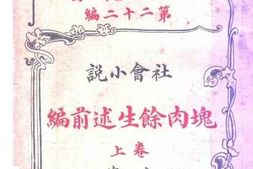 編二十二第
說小會社
編前述生餘肉塊
上卷